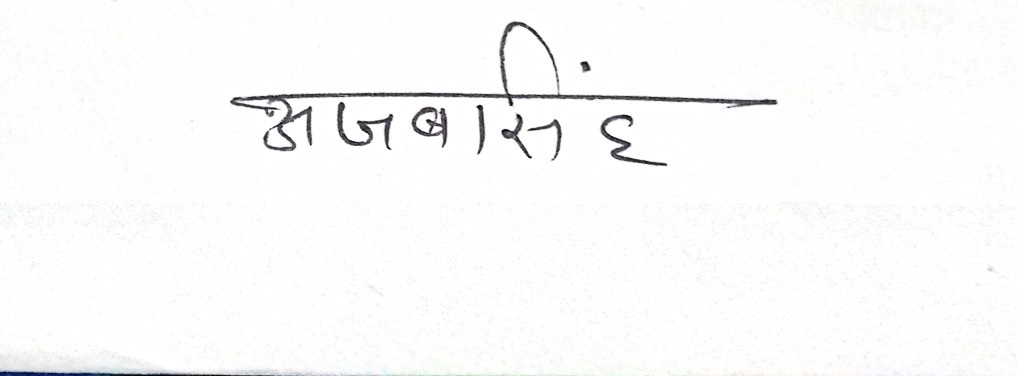 अजबसिंह